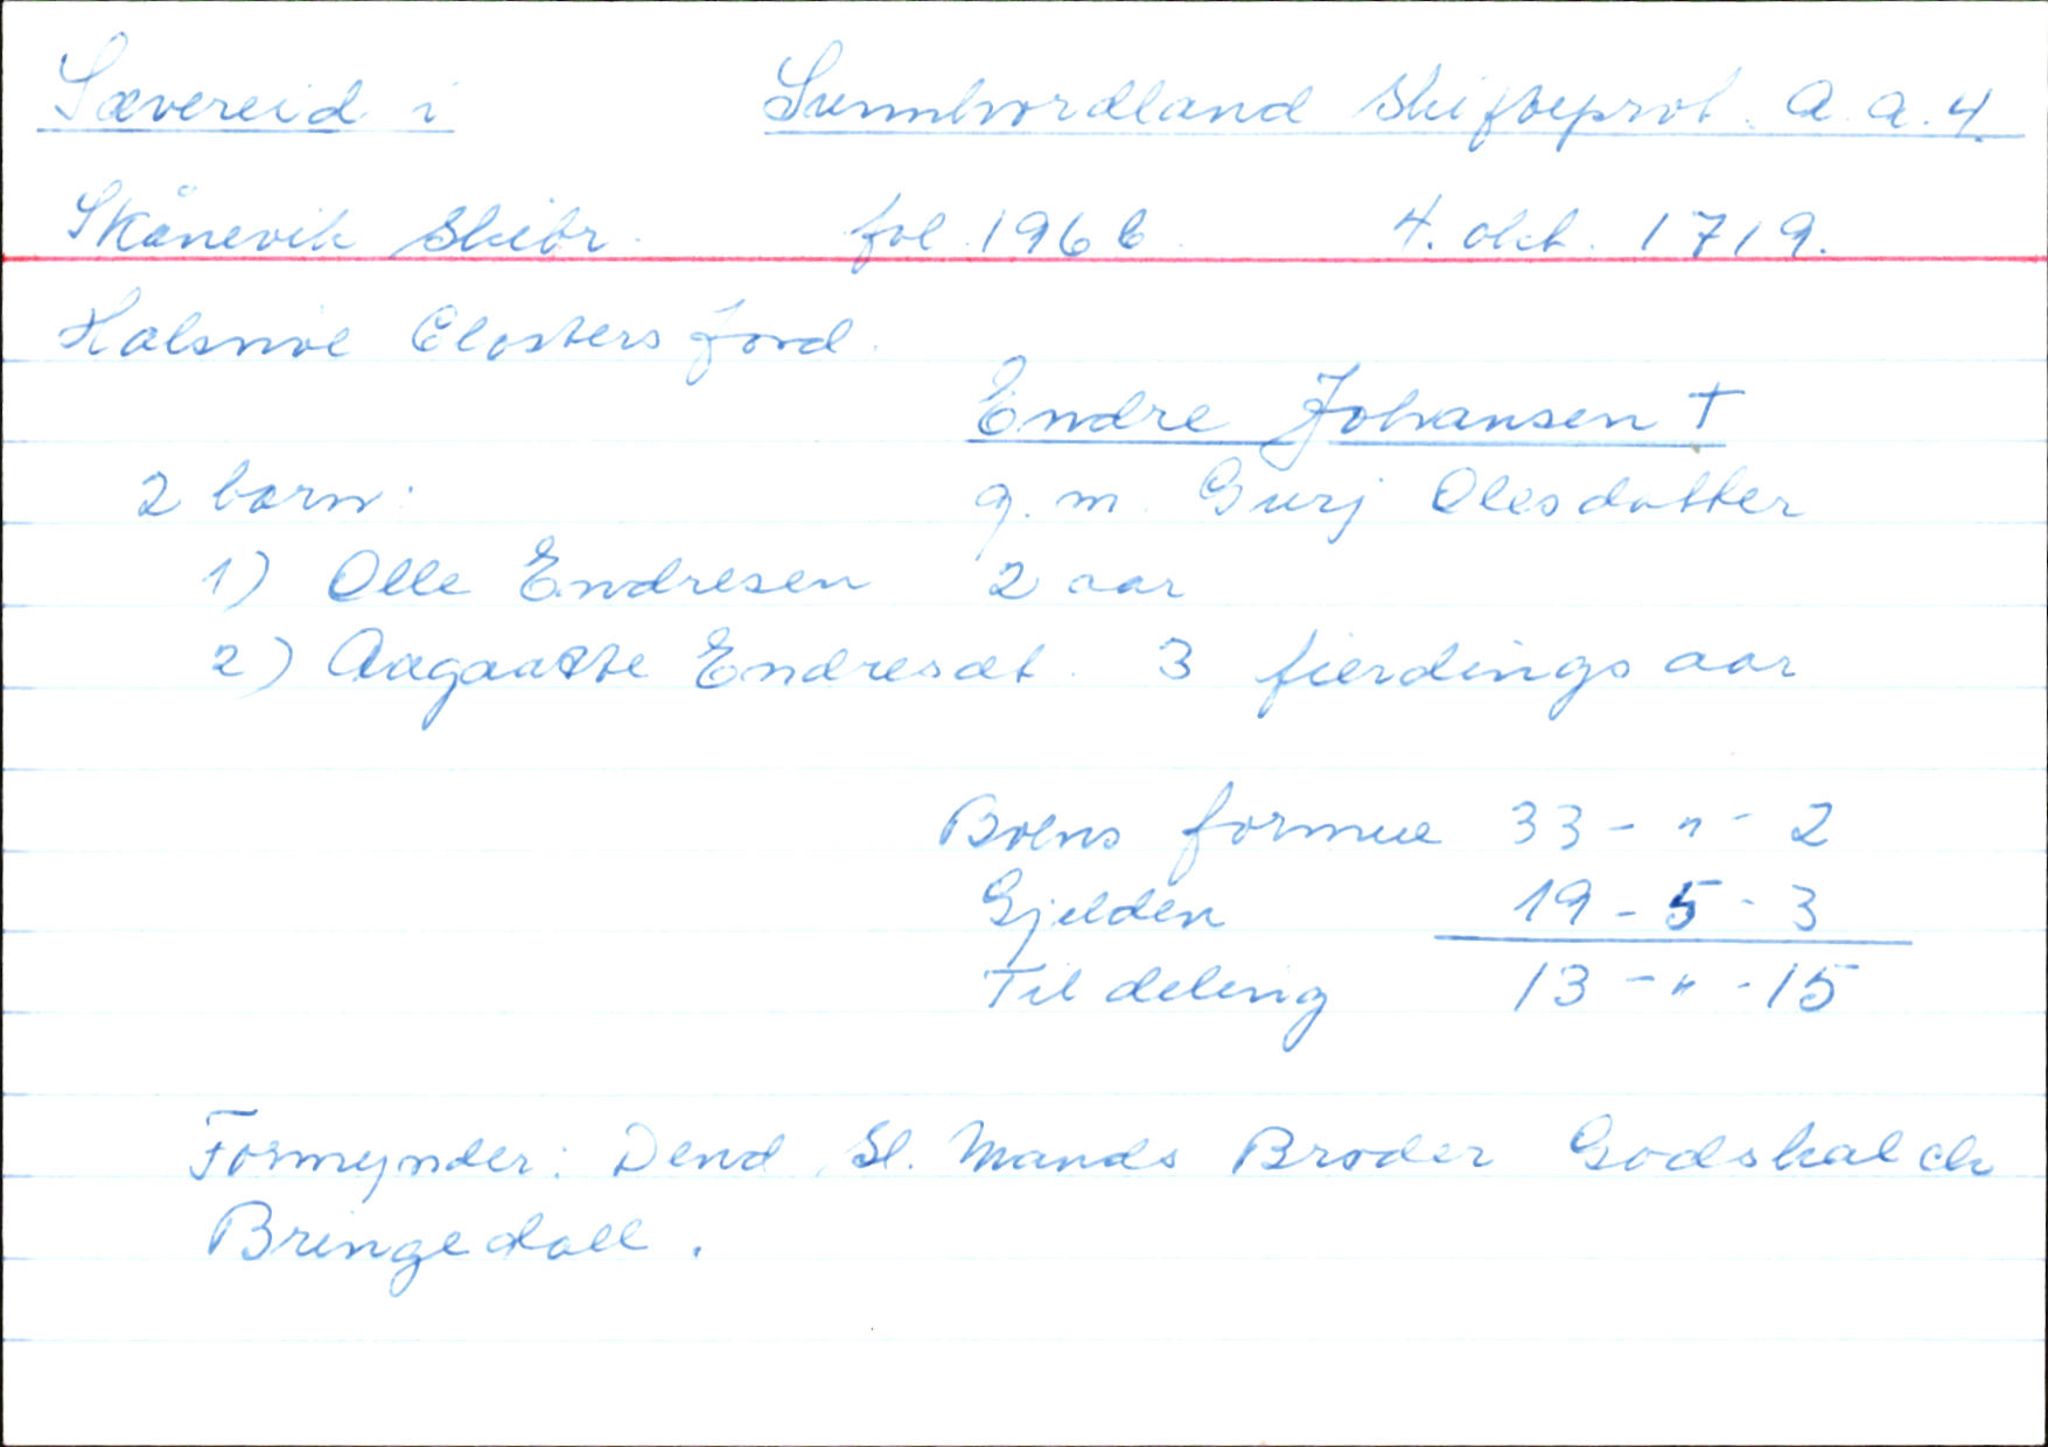 Sævereid i Sunnhordland Skifteprot. A.a.4.
Skånevik Skibr. fol. 196 b. 4. okt. 1719.
Halsnøe Closters Jord.
Endre Johansen †
2 børn: g. m. Gurj Olesdatter
1) Olle Endresen 2 aar
2) Aagaatte Endresdt. 3 fierdings aar
Boens formue 33 - " - 2
Gjelden 19 - 5 - 3
Til deling 13 - " - 15
Formynder: Dend Sl. Mands Broder Godskalch
Bringedall.